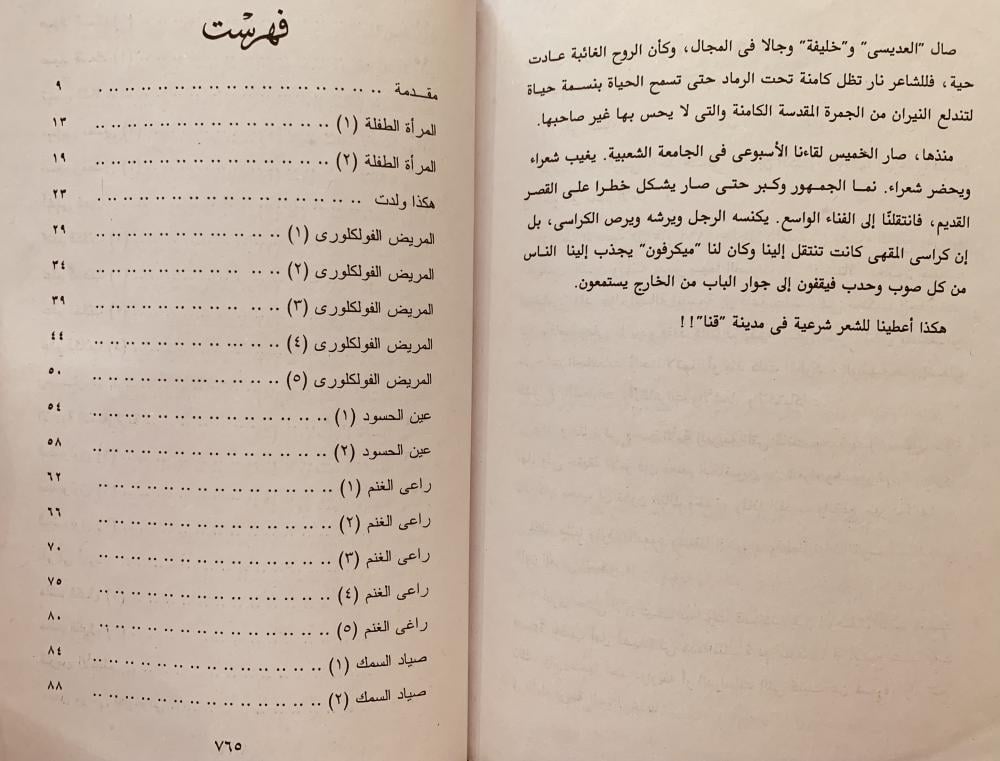 صال "العديسى" و"خليفة" وجالا فى المجال، وكأن الروح الغائبة عـادت
حية، فللشاعر نار تظل كامنة تحت الرماد حتى تسمح الحياة بنسمة حياة
لتندلع النيران من الجمرة المقدسة الكامنة والتى لا يحس بها غير صاحبها.
منذها، صار الخميس لقاءنا الأسبوعى فى الجامعة الشعبية. يغيب شعراء
ويحضر شعراء. نمـا الجمهور وكبر حتى صار يشكل خطرا على القصر
القديم، فانتقلنّا إلى الفناء الواسع. يكنسه الرجل ويرشه ويرص الكراسى، بل
إن كراسى المقهى كانت تنتقل إلينا وكان لنا "ميكرفون" يجذب إلينا الناس
من كل صوب وحدب فيقفون إلى جوار الباب من الخارج يستمعون.
هكذا أعطينا للشعر شرعية فى مدينة "قنا"!!
فهرست
مقـدمة .. .. .. .. .. .. .. .. .. .. .. .. .. .. .. .. .. . ٩
المرأة الطفلة (١) .. .. .. .. .. .. .. .. .. .. .. .. .. .. ١٣
المرأة الطفلة (٢) .. .. .. .. .. .. .. .. .. .. .. .. .. .. ١٩
هكذا ولدت .. .. .. .. .. .. .. .. .. .. .. .. .. .. .. .. . ٢٣
المريض الفولكلورى (١) .. .. .. .. .. .. .. .. .. .. .. .. ٢٩
المريض الفولكلورى (٢) .. .. .. .. .. .. .. .. .. .. .. .. ٣٤
المريض الفولكلورى (٣) .. .. .. .. .. .. .. .. .. .. .. .. ٣٩
المريض الفولكلورى (٤) .. .. .. .. .. .. .. .. .. .. .. .. ٤٤
المريض الفولكلورى (٥) .. .. .. .. .. .. .. .. .. .. .. .. ٥٠
عين الحسود (١) .. .. .. .. .. .. .. .. .. .. .. .. .. .. .. ٥٤
عين الحسود (٢) .. .. .. .. .. .. .. .. .. .. .. .. .. .. .. ٥٨
راعى الغنم (١) .. .. .. .. .. .. .. .. .. .. .. .. .. .. .. ٦٢
راعى الغنم (٢) .. .. .. .. .. .. .. .. .. .. .. .. .. .. .. ٦٦
راعى الغنم (٣) .. .. .. .. .. .. .. .. .. .. .. .. .. .. .. ٧٠
راعى الغنم (٤) .. .. .. .. .. .. .. .. .. .. .. .. .. .. .. ٧٥
راغى الغنم (٥) .. .. .. .. .. .. .. .. .. .. .. .. .. .. .. ٨٠
صياد السمك (١) .. .. .. .. .. .. .. .. .. .. .. .. .. .. .. ٨٤
صياد السمك (٢) .. .. .. .. .. .. .. .. .. .. .. .. .. .. .. ٨٨
٧٦٥